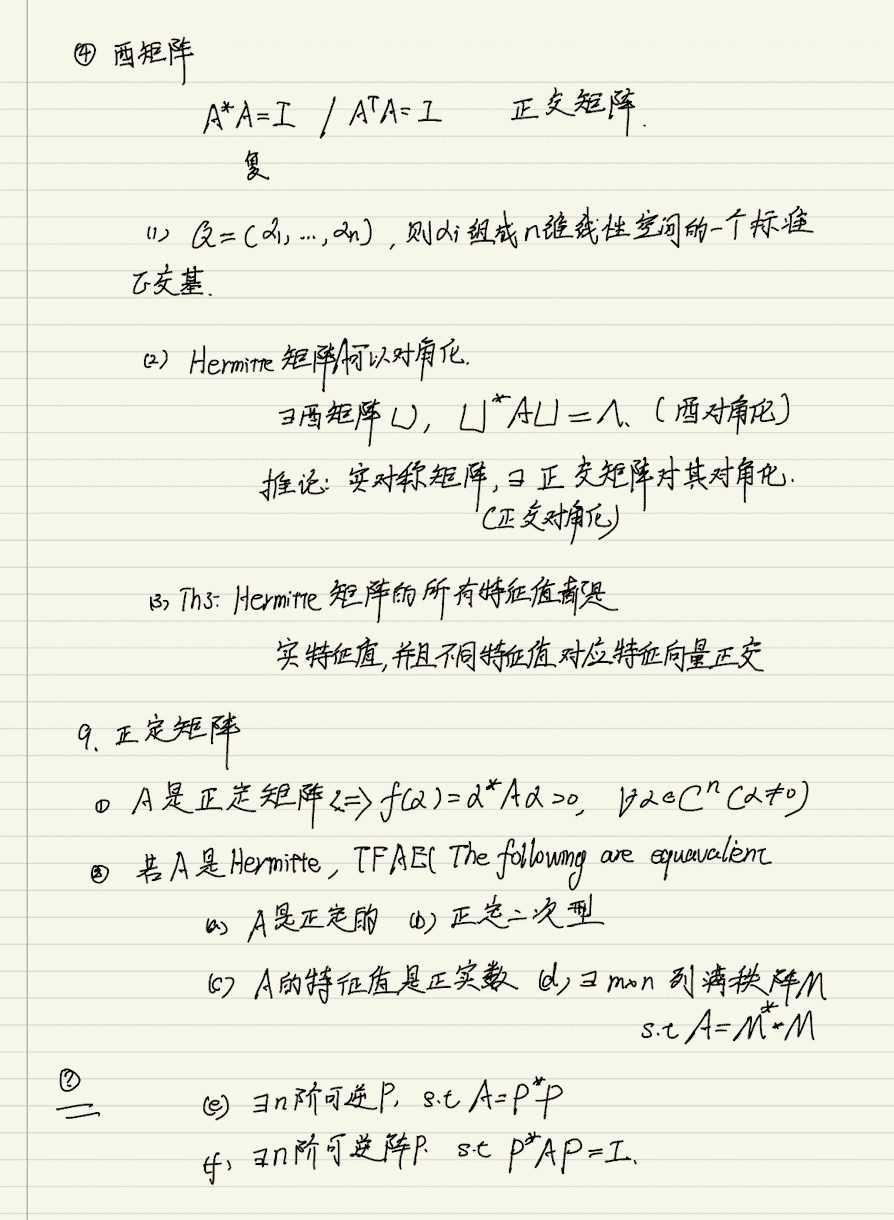 ④ 酉矩阵
A*A=I / AᵀA=I 正交矩阵.
复
(1) Q=(α₁, …, αn), 则αi组成n维线性空间的一个标准
正交基.
(2) Hermitte 矩阵A可以对角化.
∃酉矩阵U, U*AU=Λ. (酉对角化)
推论: 实对称矩阵, ∃正交矩阵对其对角化.
(正交对角化)
(3) Th3: Hermitte 矩阵的所有特征值都是
实特征值, 并且不同特征值对应特征向量正交
9. 正定矩阵
① A是正定矩阵<=> f(α)=α*Aα>0, ∀α∈Cⁿ (α≠0)
② 若A是Hermitte, TFAE( The following are equavalent
(a) A是正定的 (b) 正定二次型
(c) A的特征值是正实数 (d) ∃ m×n 列满秩阵M
s.t A=M**M
?
(e) ∃n阶可逆P, s.t A=P*P
(f) ∃n阶可逆阵P. s.t P*AP=I.